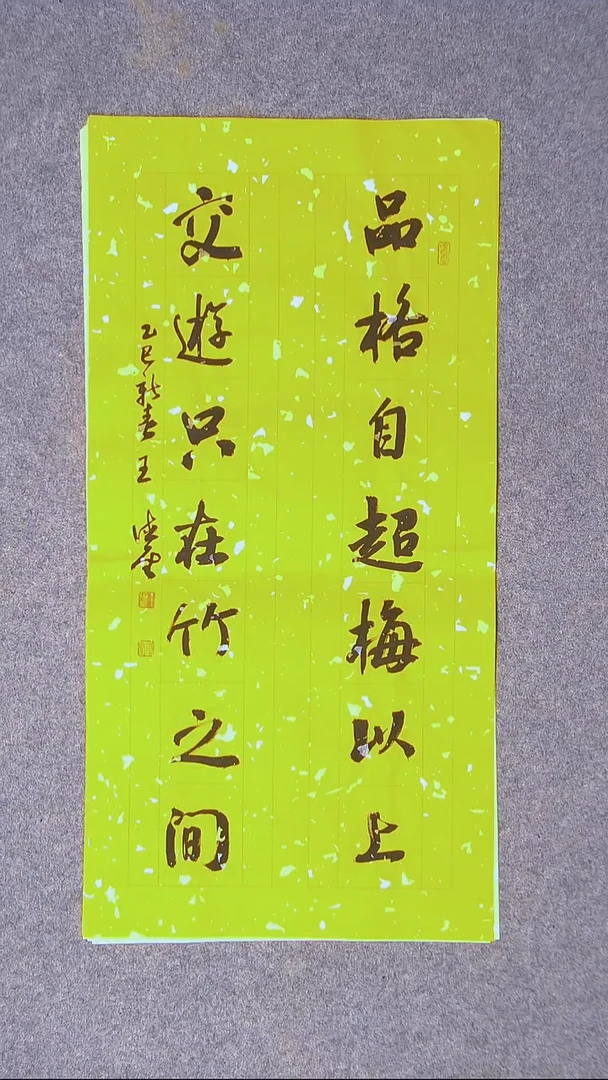 品格自超梅以上
交遊只在竹之间
乙巳新春王